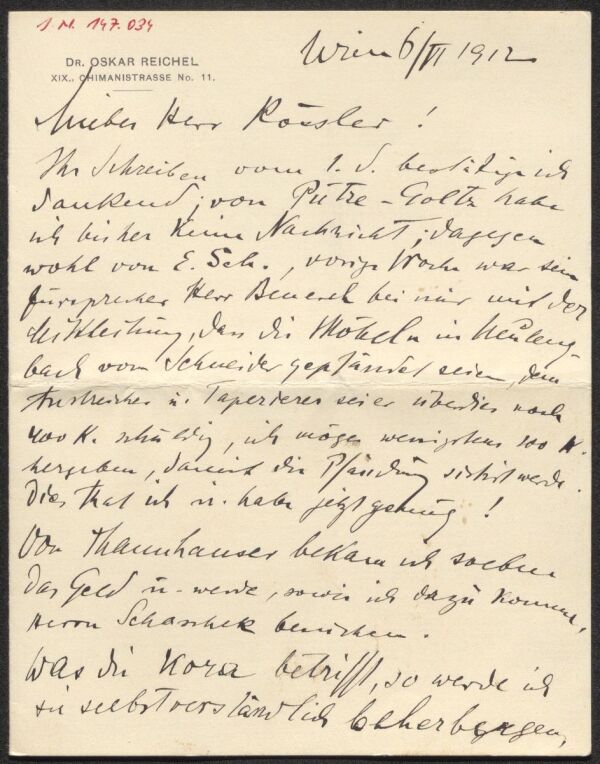 I.N. 147.034
DR. OSKAR REICHEL
XIX., CHIMANISTRASSE No. 11.
Wien 6/VI 1912
Lieber Herr Rössler!
Ihr Schreiben vom 1. d. bestätige ich
dankend; von Putze-Goltz habe
ich bisher keine Nachricht; dagegen
wohl von E. Sch., vorige Woche war sein
Fürsprecher Herr Benesch bei mir mit der
Mittheilung, dass die Möbeln in Neuleng-
bach vom Schneider gepfändet seien, dem
Anstreicher u. Tapezierer sei er überdies noch
400 K. schuldig, ich möge wenigstens 100 K.
hergeben, damit die Pfändung sistirt werde.
Dies that ich u. habe jetzt genug!
Von Thannhauser bekam ich soeben
das Geld u. werde, sowie ich dazu komme,
Herrn Schaschek
was die Kora betrifft, so werde ich
sie selbstverständlich beherbergen,